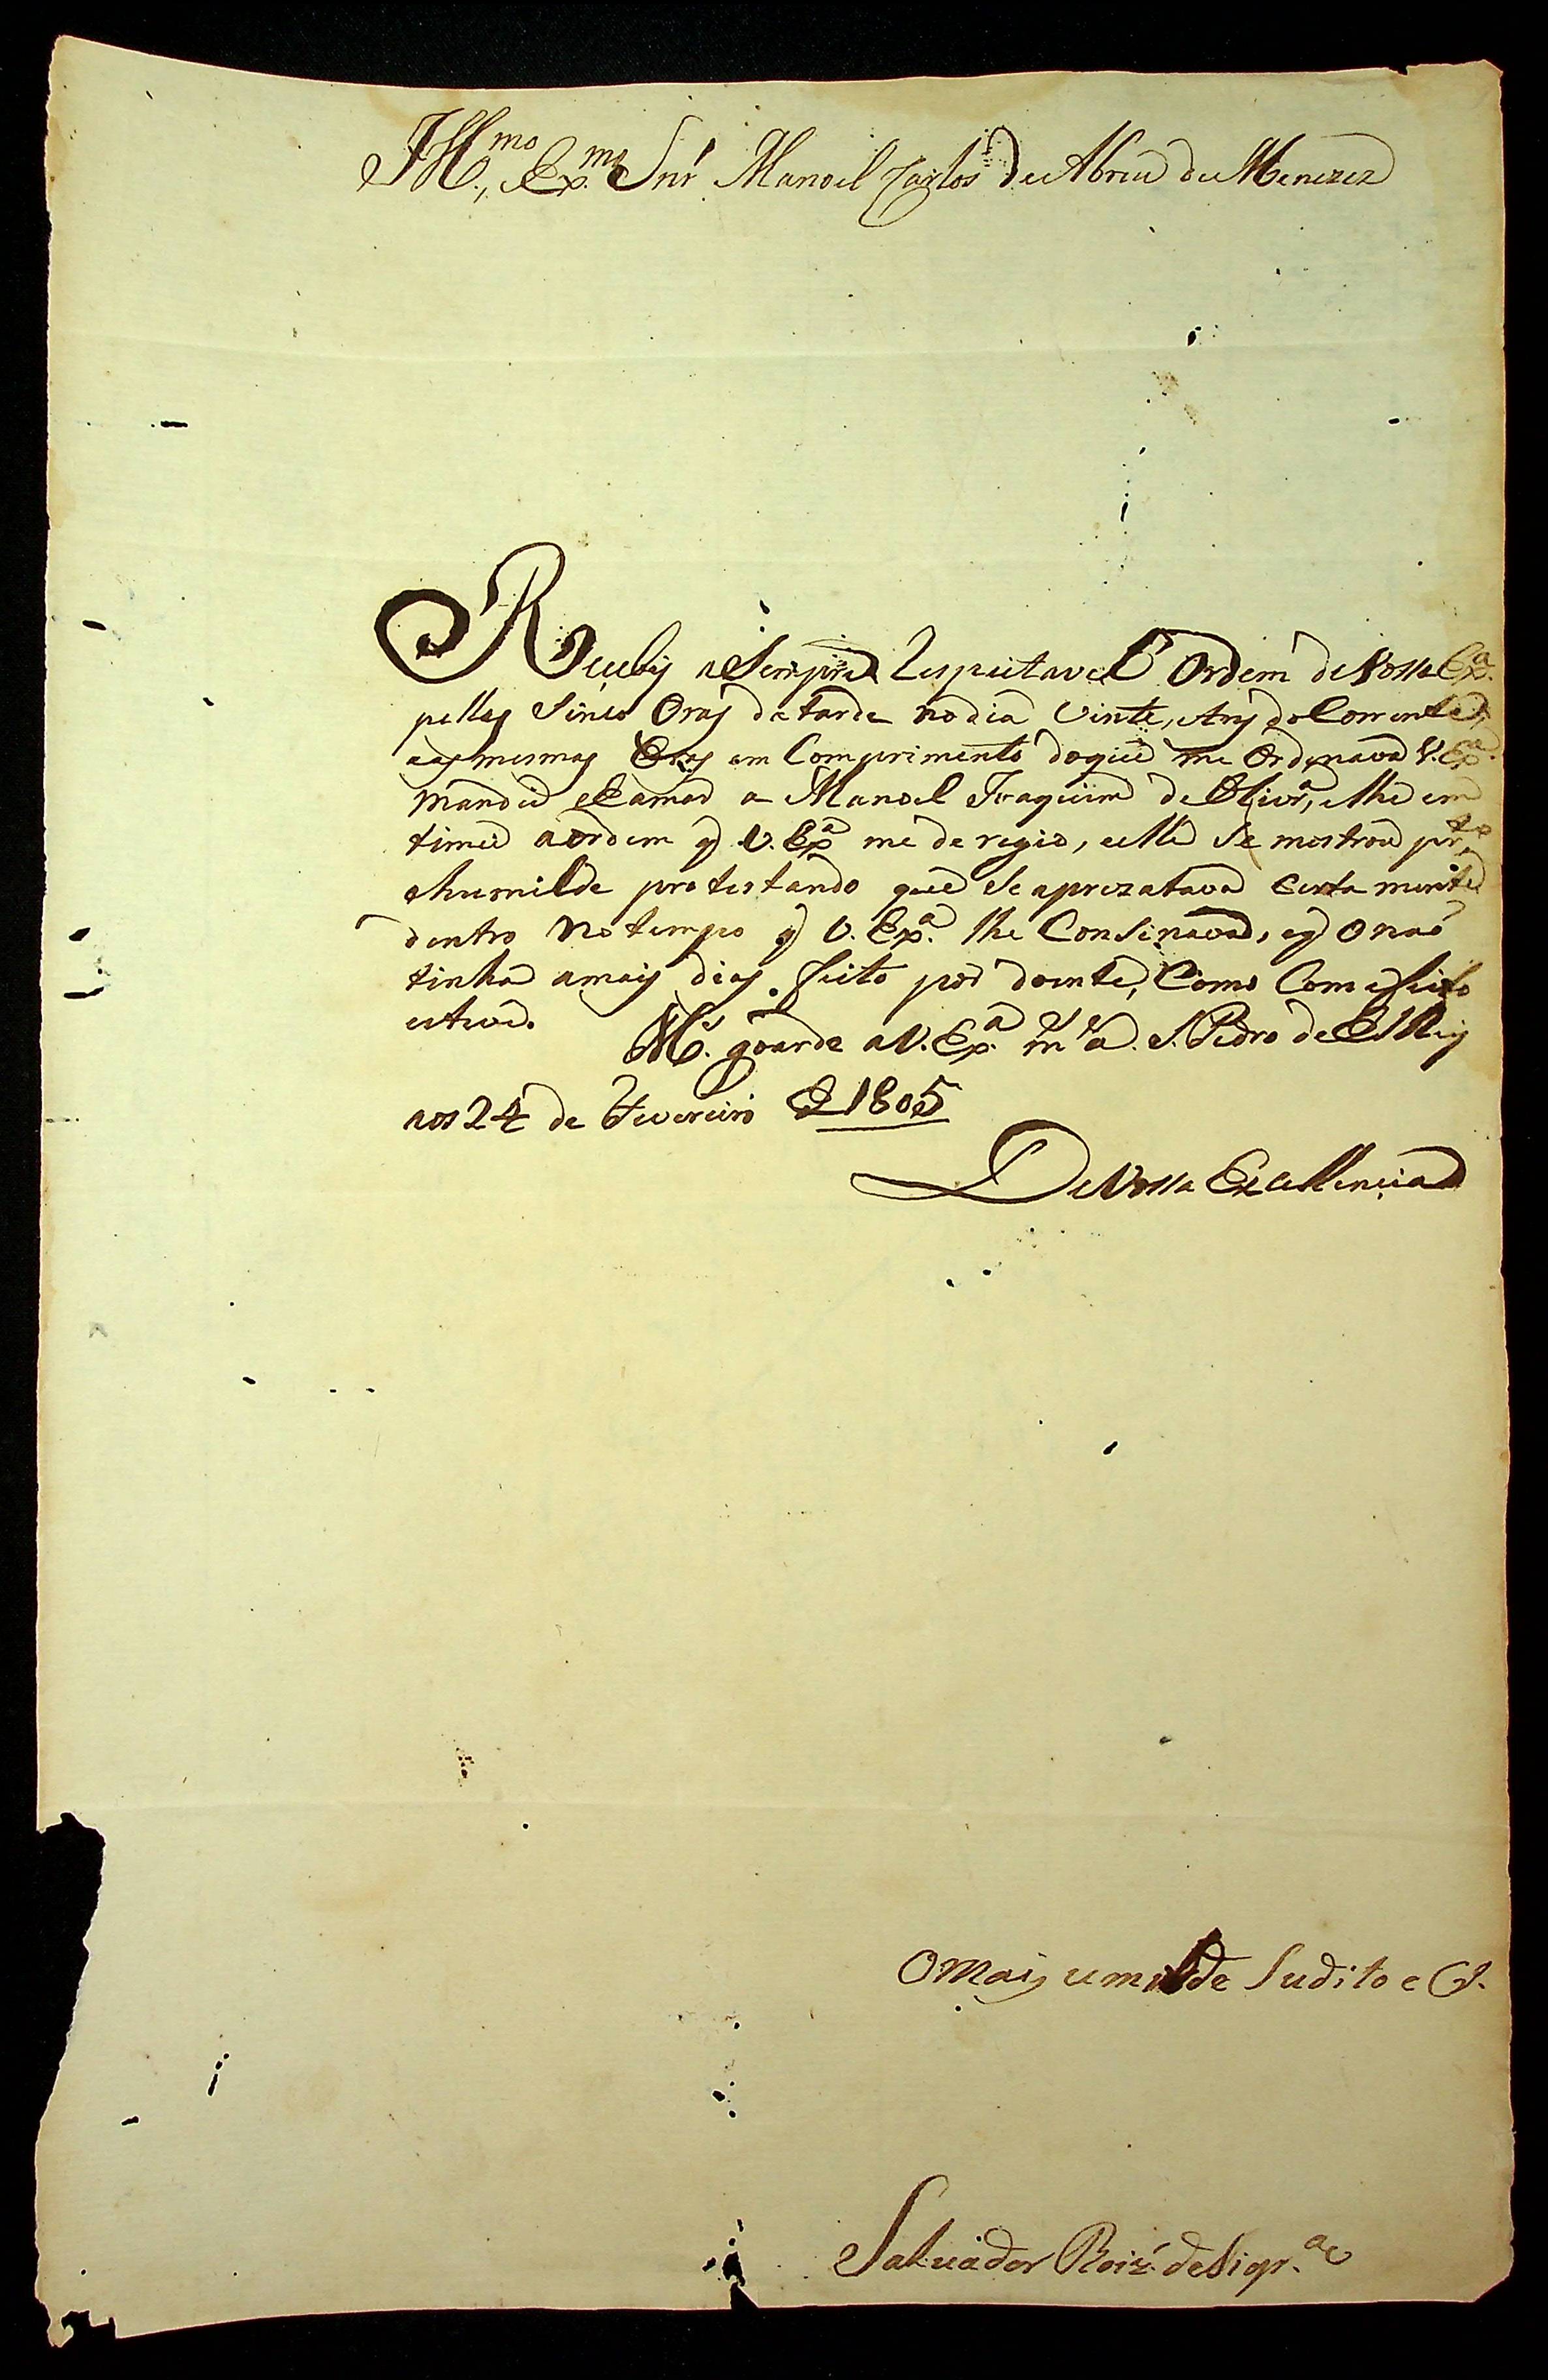 Ill.mo, e Ex.mo Snr̃ Manoel Carlos de Abreu de Menezez
Recebij a sempre Respeitavel Ordem de Vossa Ex.a
pellas sinco Oras da tarde no dia vinte, e trȷs do Corrente,
e as mesmas Oras em Comprimento do que me Ordenava V. Ex.a
mandei chamar a Manoel Joaquim de Olivr.a, e lhe em
timei a ordem q̃ V. Ex.a me deregio, e elle se mostrou p.to
humilde protestando que se aprezatava certa mente
dentro no tempo q̃ V. Ex.a lhe Consinava, e q̃ o naõ
tinha a mais dias feito por doente, Como Com efeito
esteve.
guarde a V. Ex.a m.s a.s S. Pedro de
aos 24 de Fevereiro d 1805
De Vossa Excellencia
O Mais umilde Sudito e C.
Salvador Roiz̃ de Siqr.a